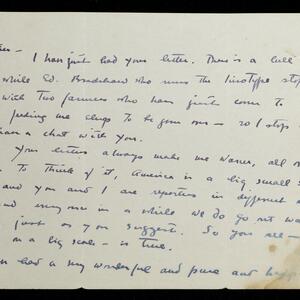 – I have just had your letter. There is a lull
while Ed. Bradshaw who runs the linotype stop
with two farmers who have just come to
me clups to be gone over – so I stop
than a chat with you.
Your letters always make me warm, all o
to think of it, America is a big small
and you and I are reporters in different
and every once in a while we do get wa
just as you suggest. So you see –
on a big scale – is true.
had a very wonderful and pure and happ